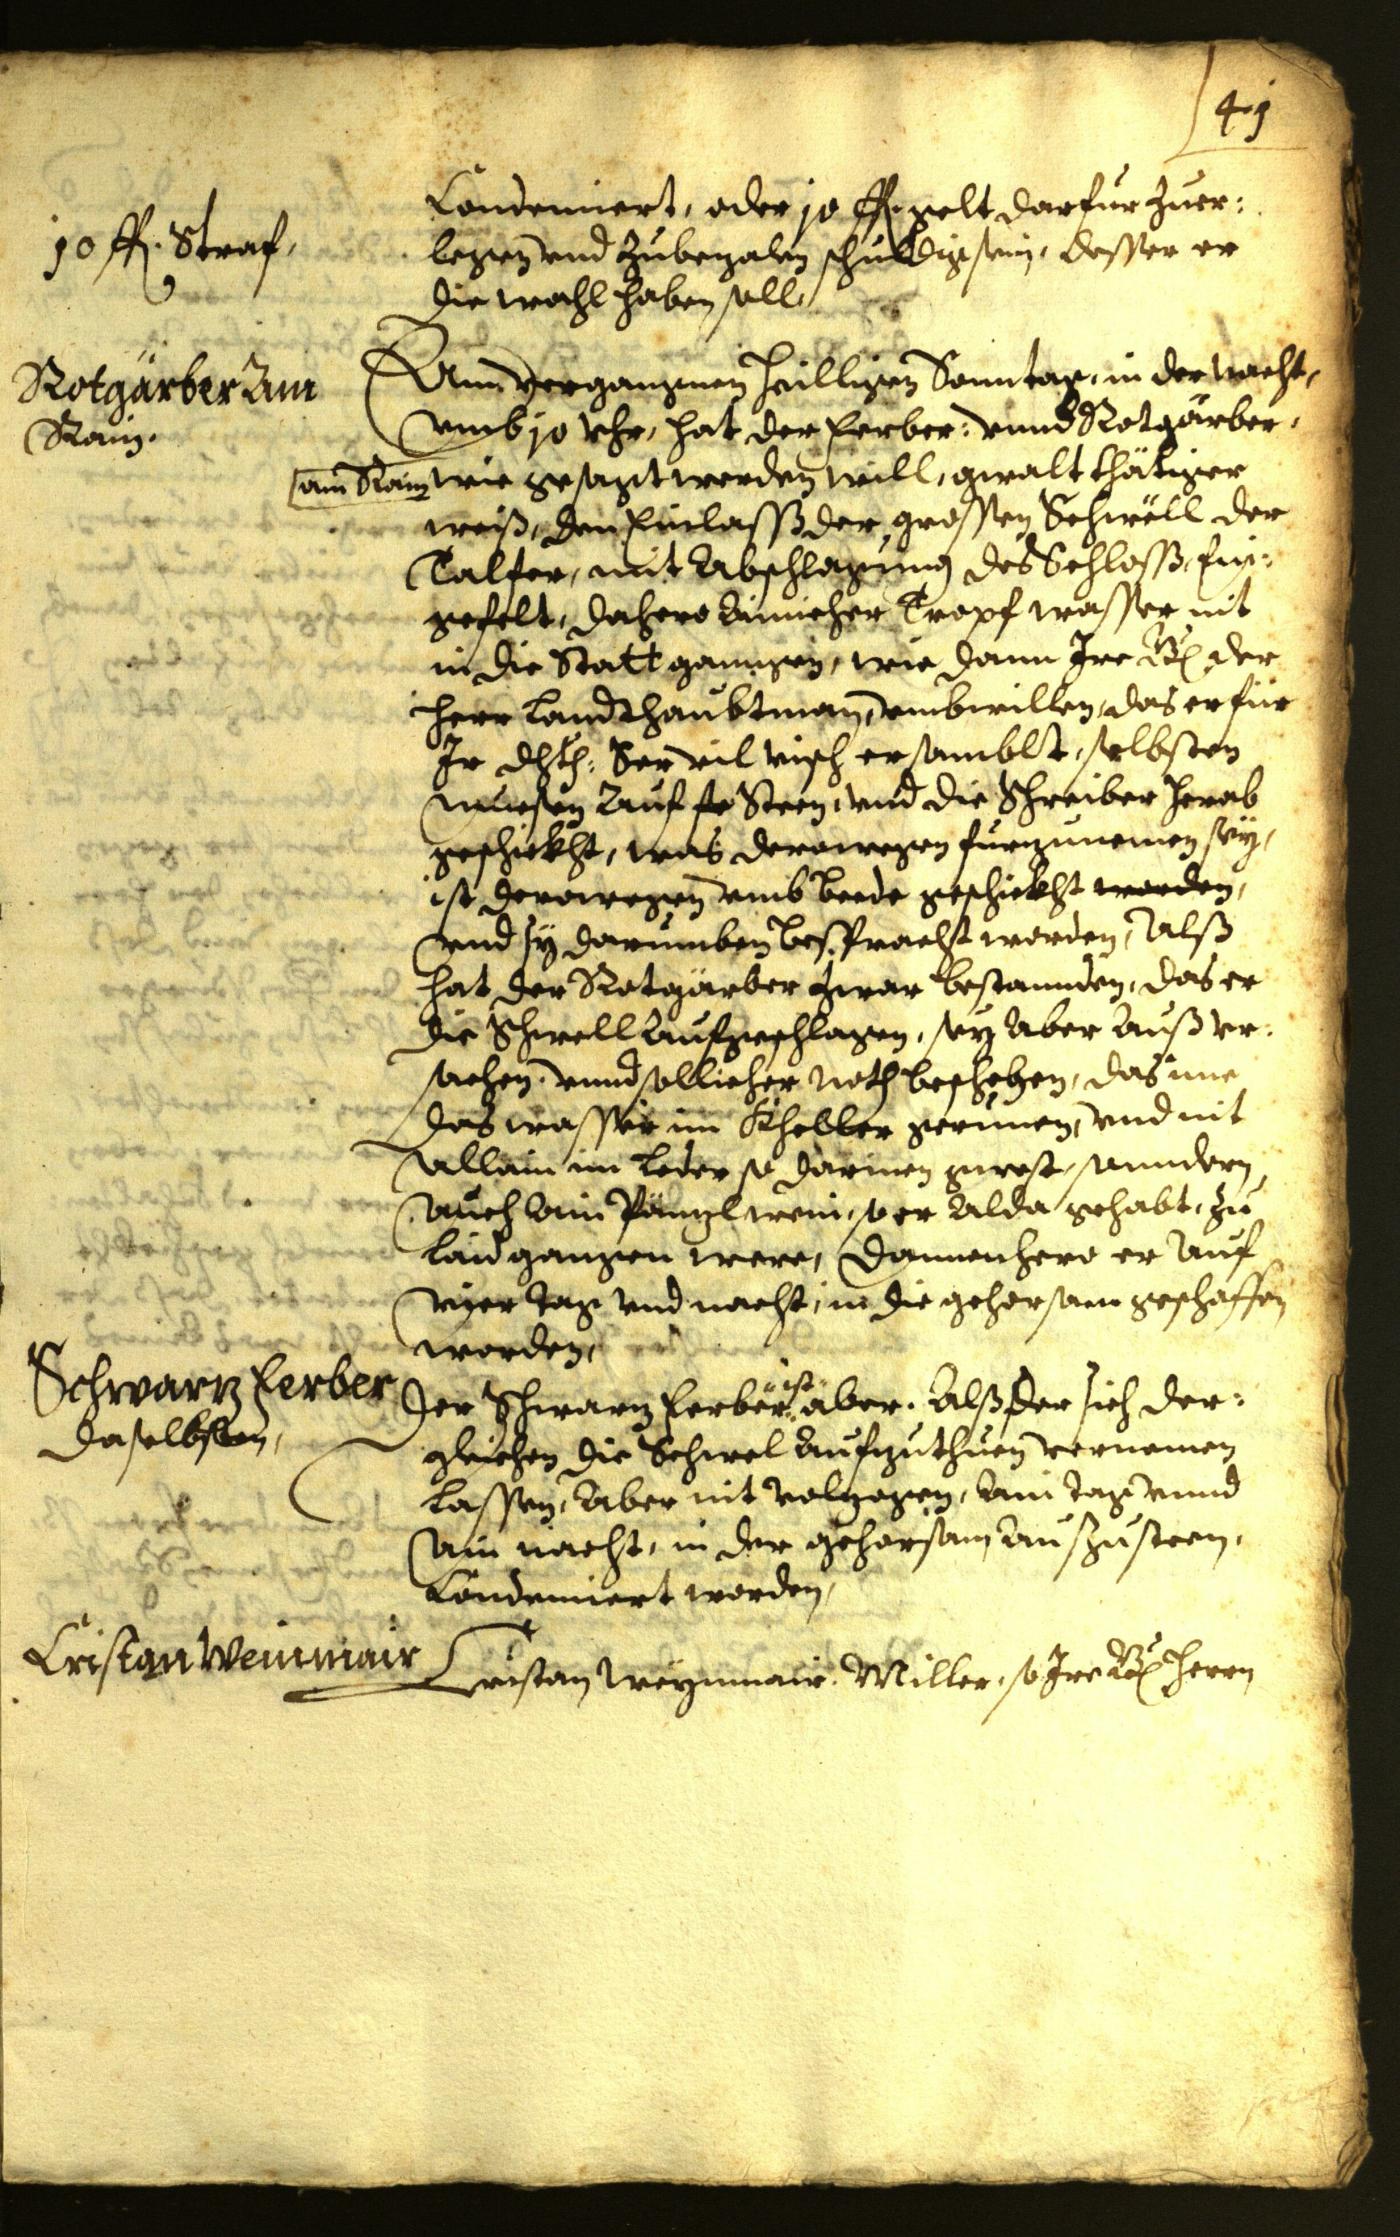 41
Condenniert, oder 10 ff. gelt darfur zuer:
legen vnd zubezalen schuldig sein, dessen er
die wahl haben soll,
10 ff. Straf,
Rotgärber Am
Rain.
Ann vergangnen heilligen Sonntag, in der nacht,
vmb 10 Vhr, hat der Ferber: vnnd Rotgärber,
am Rain wie gesagt werden will, gwaltthätiger
weiß, den Einlasß der grossen Schwell der
Talfer, mit Abschlagung des Schlosß, ein:
gefelt, dahero ainicher Tropf wasser nit
in die Statt ganngen, wie dann Ire Gn der
herr Landthaubtman, vmbwillen, das er für
Ir dht: Ser vil visch ersamblt, selbsten
muesen Auf steen, vnd die Schreiber herab
geschickht, was derowegen fürzunemen sey,
ist derowegen vmb beede geschickht worden,
vnd sy darumben bespracht worden, Alß
hat der Rotgärber zwar bestannden, das er
die Schwell Aufgeschlagen, sey Aber Auß vr:
sachen vnnd sollicher noth beschehen, das ime
das wasser im Kheller gerunen, vnd nit
allain im Leder so darinen gwest, sonndern
auch Ain Pänzl wein, so er Alda gehabt, zu
laid ganngen were, dannenhero er Auf
vier tag vnd nacht, in die gehorsam geschaffen
worden,
Schwarz Ferber
daselbsten,
Der Schwarz Ferber ist aber, Alß der sich der:
gleichen die Schwel Aufzuthuen vernemen
lassen, Aber nit volzogen, Ain tag vnnd
ain nacht, in der gehorsam Auszusteen,
Condenniert worden,
Cristan Weinmair
Cristan Weynmair Miller, so Ire Gn Herrn